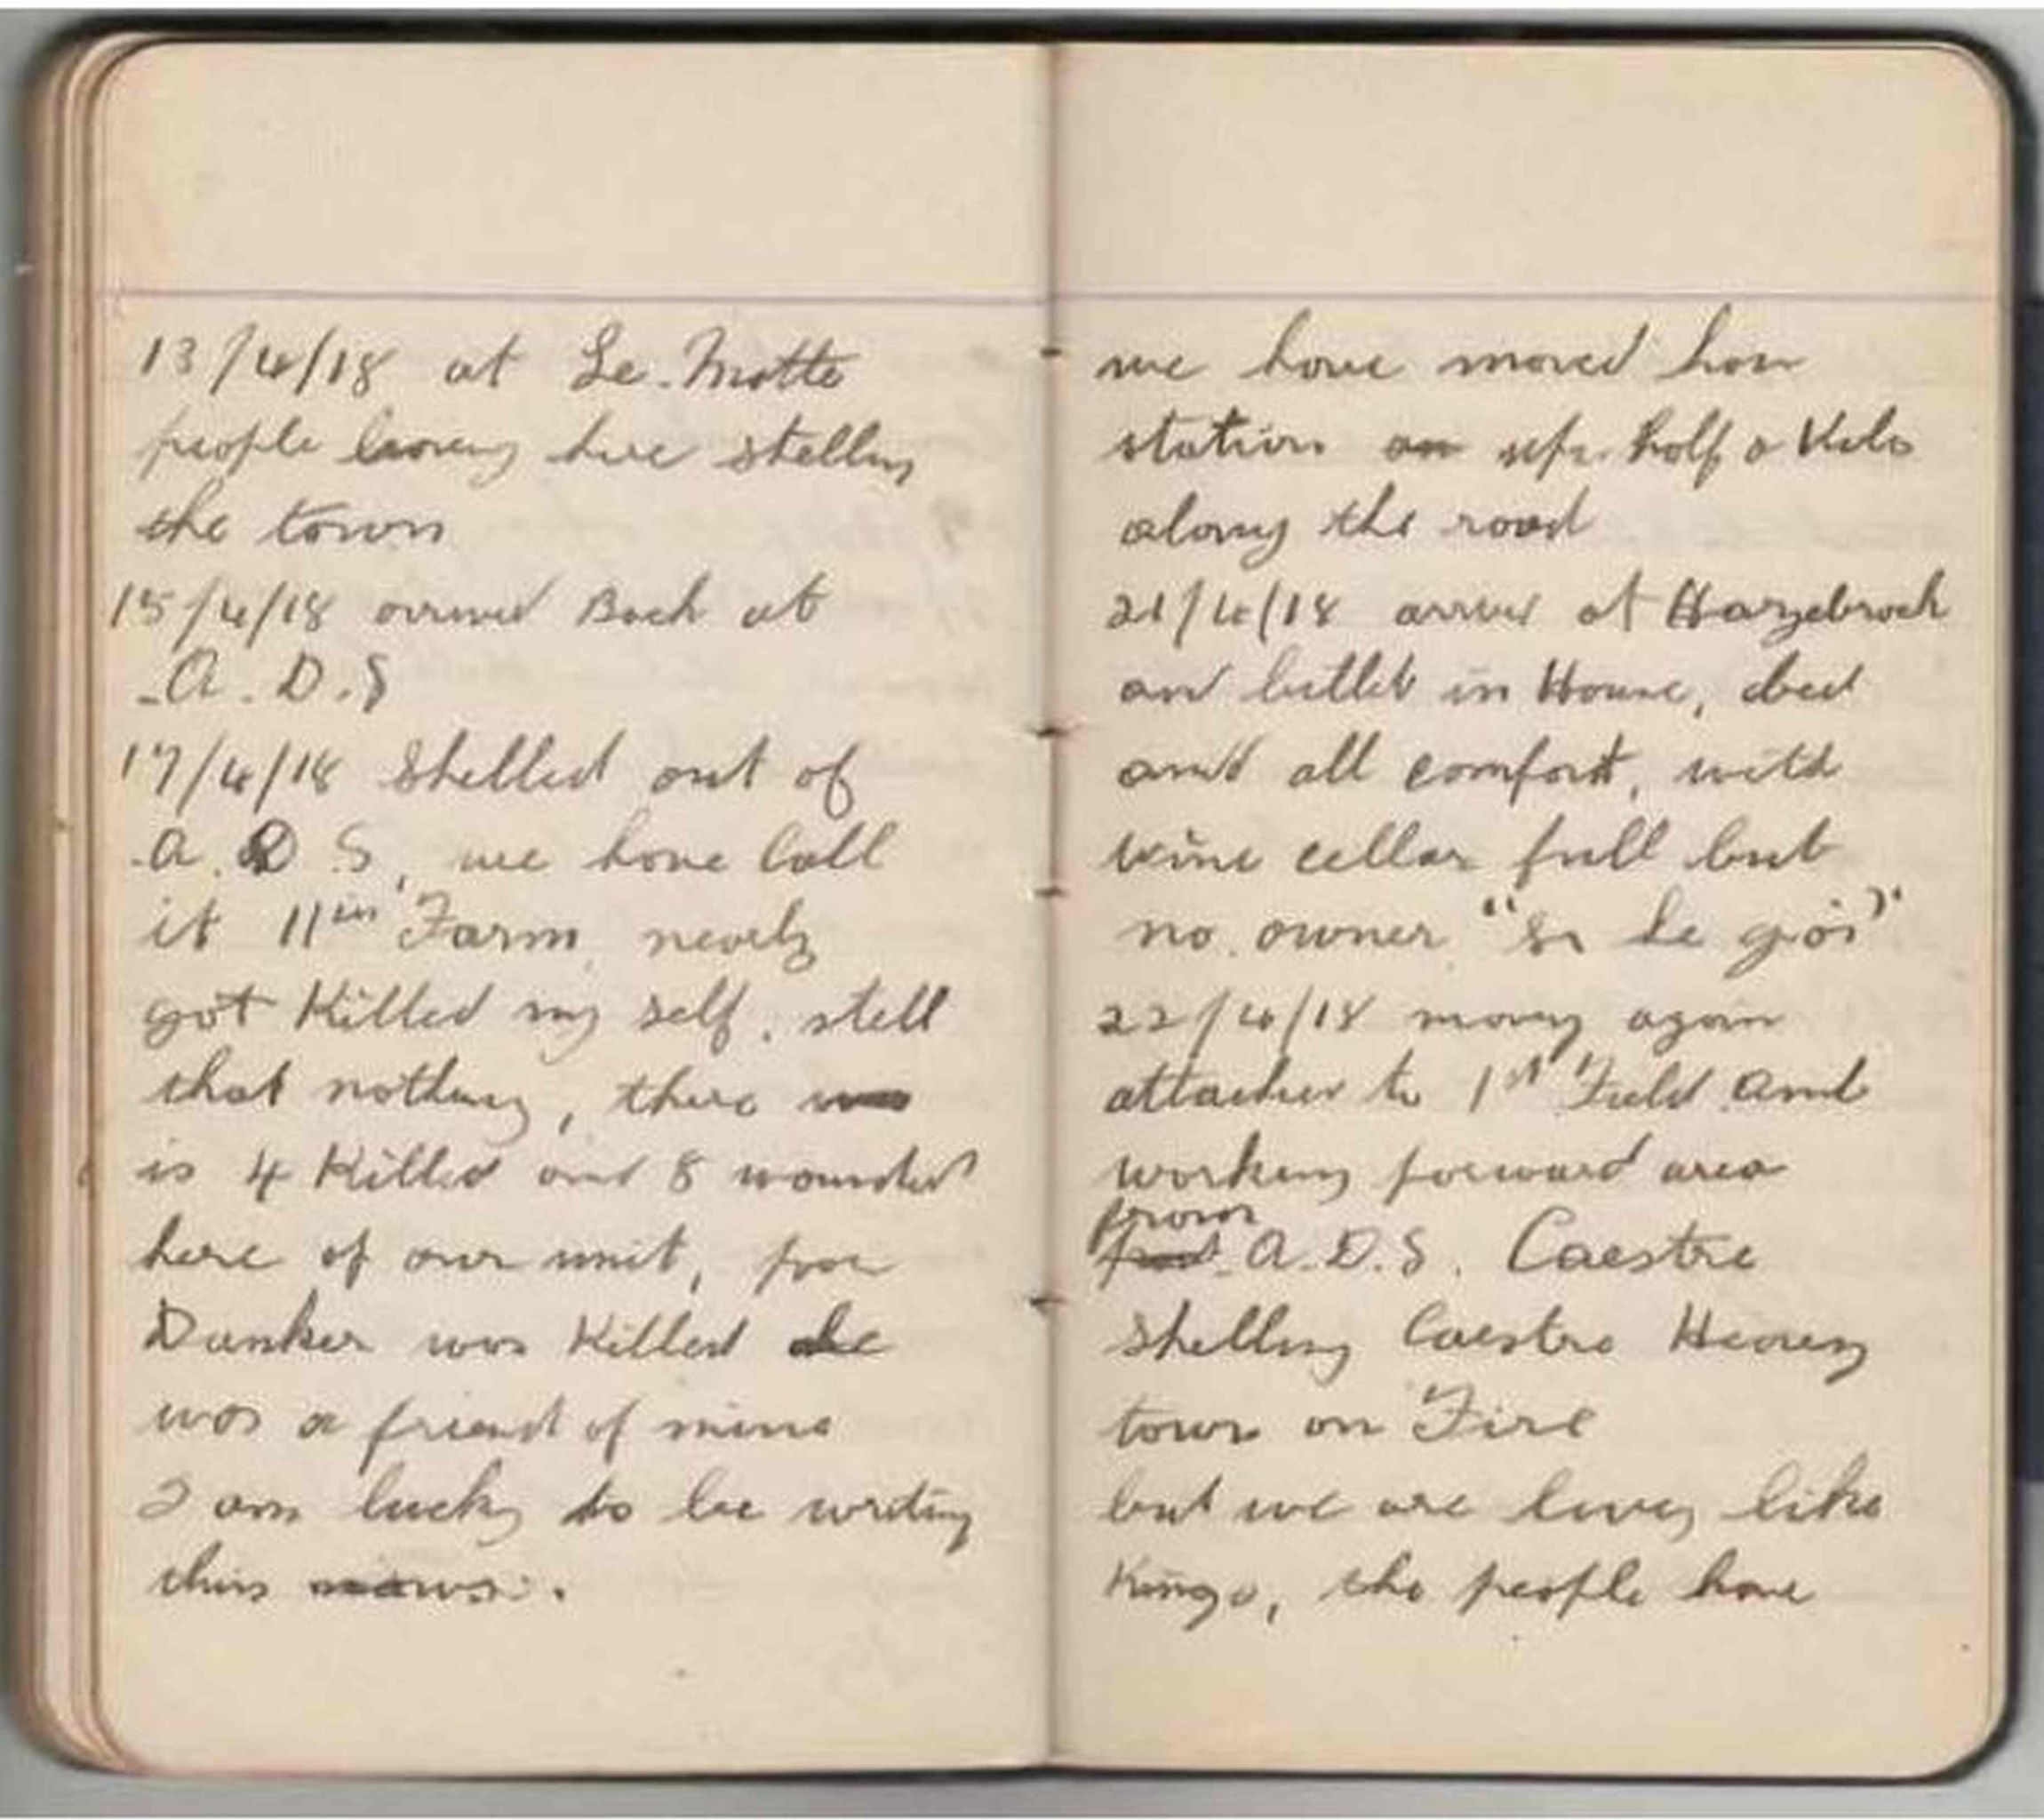 13/4/18 at Le. Motte
people leaving here shelling
the town
15/4/18 arrived Back at
A. D. S
17/4/18 Shelled out of
A. D. S, we have Call
it 11in Farm, nearly
got Killed my self. still
that nothing, there was
is 4 Killed and 8 wounded
here of our unit, poor
Dunker was Killed he
was a friend of mine
I am lucky to be writing
this
we have moved
station up. half a Kilo
along the road
21/4/18 arrived at Hazebrock
and billet in House, bed
and all comfort, with
wine cellar full but
no. owner
22/4/18 moving again
attached to 1st Field. Amb
working forward area
from
A.D.S. Caestre
Shelling Caestre Heavey
town on Fire
but we are living like
Kings, the people have